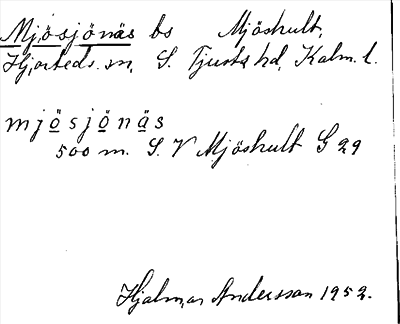 Mjösjönäs bs Mjöshult,
Hjorteds sn, S. Tjusts hd, Kalm. l.
mjösjönäs
500 m. S. V Mjöshult G 29
Hjalmar Andersson 1952.